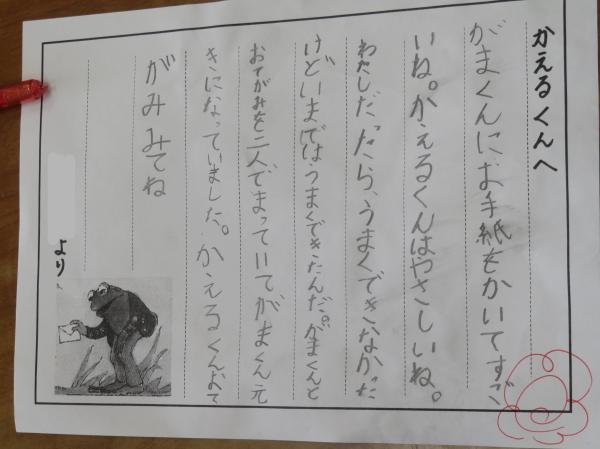 かえるくんへ
がまくんにお手紙をかいてすご
いね。かえるくんはやさしいね。
わたしだったら、うまくできなかった
けどいまではうまくできたんだ。がまくんと
おてがみを二人でまっていてがまくん元
きになっていました。かえるくんおて
がみみてね
より